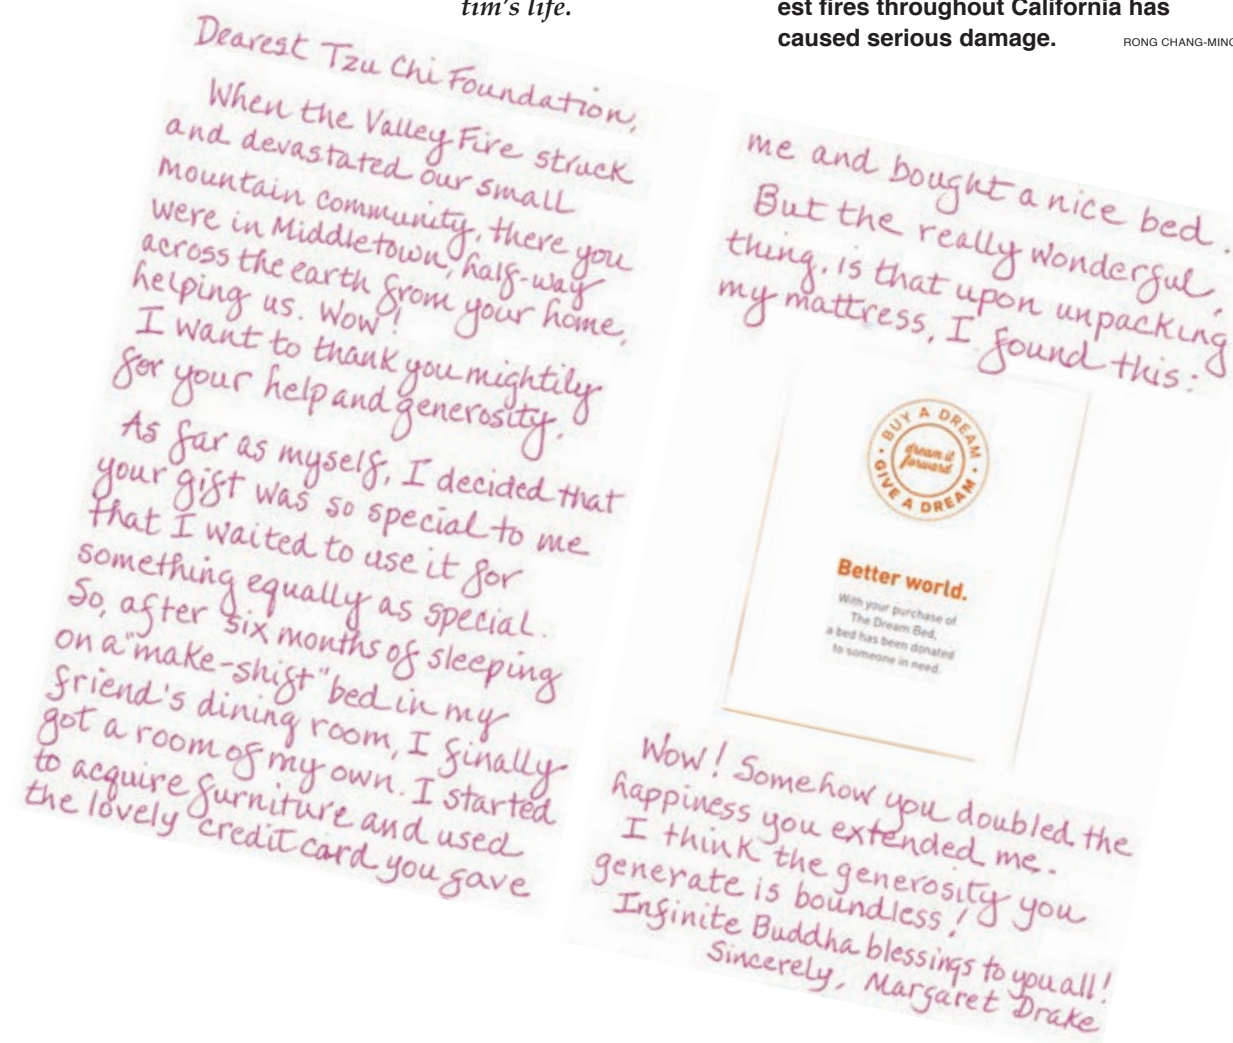 tim's life.
est fires throughout California has
caused serious damage.
RONG CHANG-MING
Dearest Tzu Chi Foundation,
When the Valley Fire struck
and devastated our small
mountain community, there you
were in Middletown, half-way
across the earth from your home,
helping us. Wow!
I want to thank you mightily
for your help and generosity.
As far as myself, I decided that
your gift was so special to me
that I waited to use it for
something equally as special.
So, after six months of sleeping
on a "make-shift" bed in my
friend's dining room, I finally
got a room of my own. I started
to acquire furniture and used
the lovely credit card you gave
me and bought a nice bed.
But the really wonderful,
thing, is that upon unpacking
my mattress, I found this:
BUY A DREAM
dream it
forward
GIVE A DREAM
Better world.
With your purchase of
The Dream Bed,
a bed has been donated
to someone in need.
Wow! Somehow you doubled the
happiness you extended me.
I think the generosity you
generate is boundless!
Infinite Buddha blessings to you all!
Sincerely, Margaret Drake